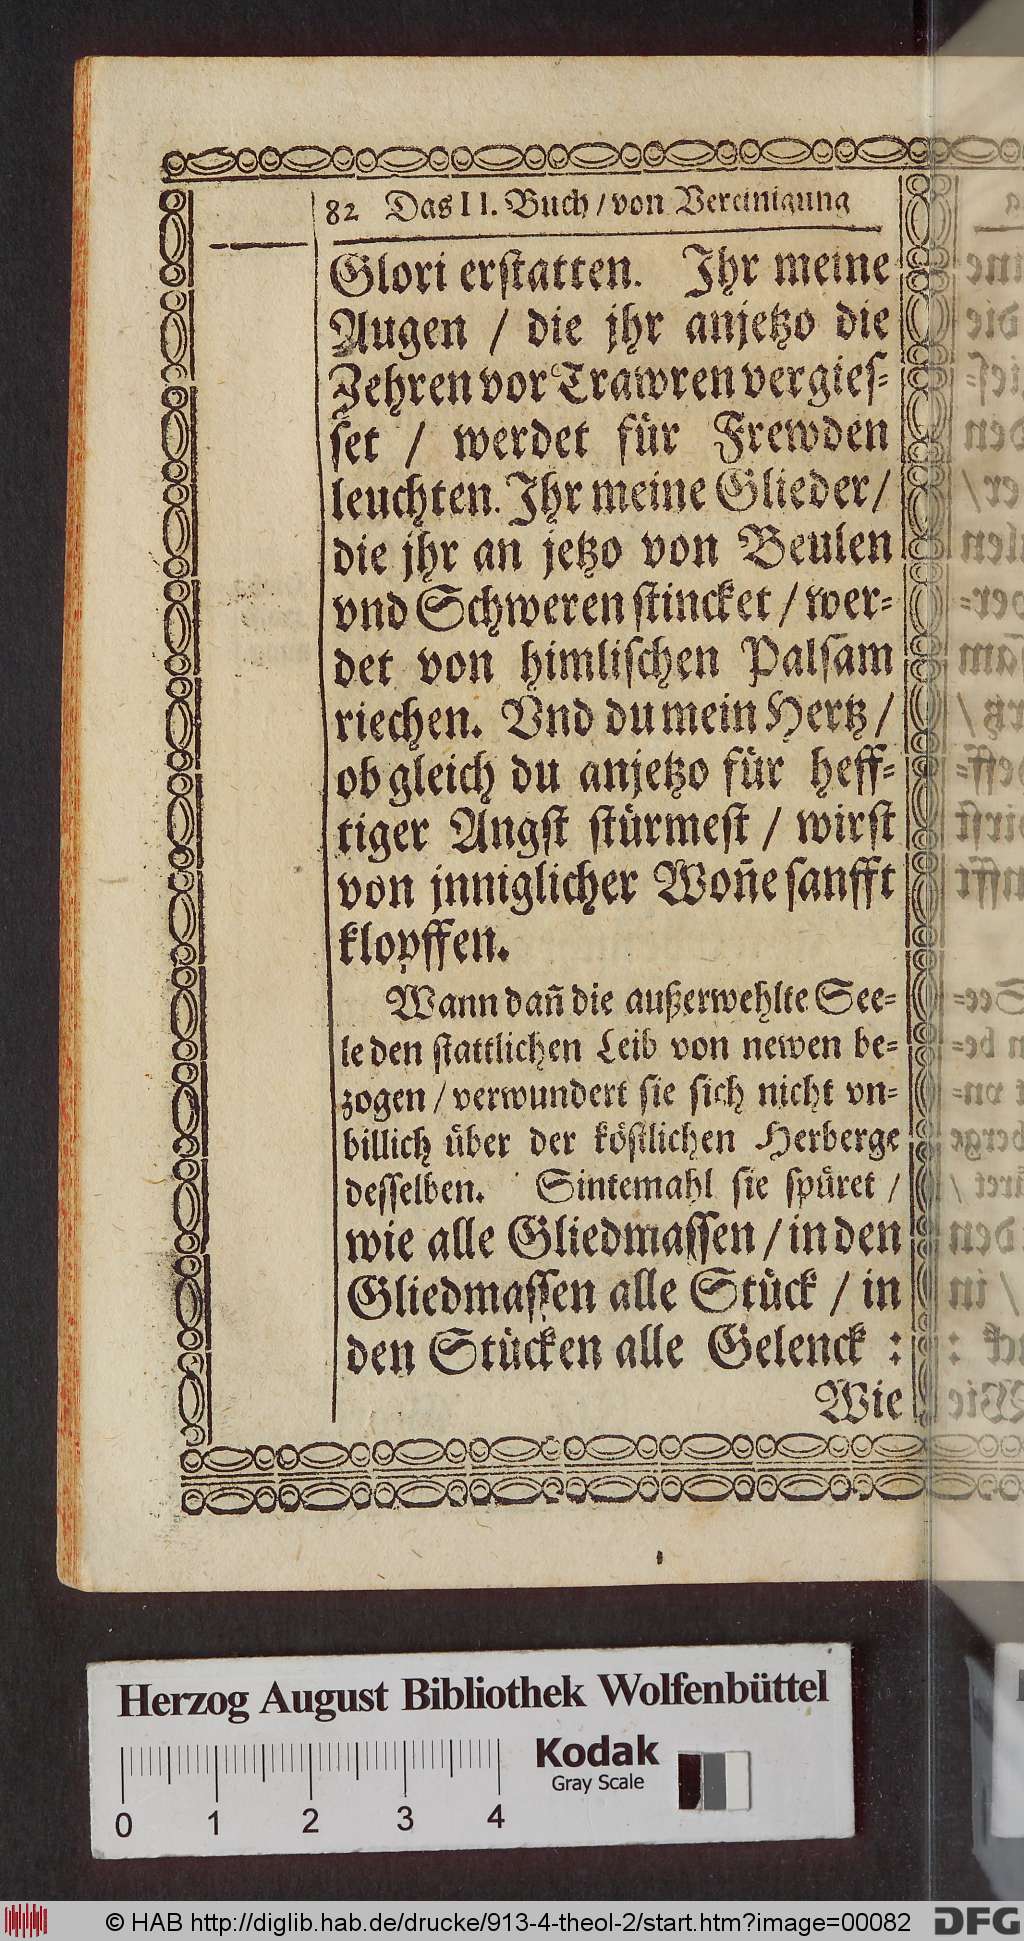 82 Das II. Buch / von Vereinigung
Glori erstatten. Ihr meine
Augen / die jhr anjetzo die
Zehren vor Trawren vergies-
set / werdet für Frewden
leuchten. Ihr meine Glieder /
die jhr an jetzo von Beulen
vnd Schweren stincket / wer-
det von himlischen Palsam
riechen. Vnd du mein Hertz /
ob gleich du anjetzo für heff-
tiger Angst stürmest / wirst
von jnniglicher Woñe sanfft
klopffen.
Wann dañ die außerwehlte See-
le den stattlichen Leib von newen be-
zogen / verwundert sie sich nicht vn-
billich über der köstlichen Herberge
desselben. Sintemahl sie spüret /
wie alle Gliedmassen / in den
Gliedmassen alle Stück / in
den Stücken alle Gelenck :
Wie
Herzog August Bibliothek Wolfenbüttel
Kodak
Gray Scale
0 1 2 3 4
© HAB http://diglib.hab.de/drucke/913-4-theol-2/start.htm?image=00082
DFG